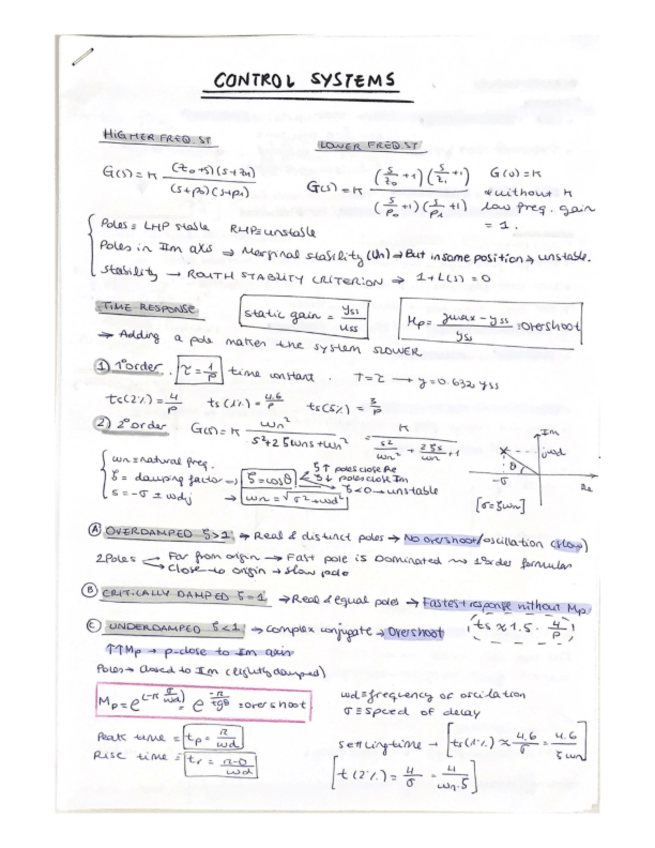 CONTROL SYSTEMS
HIGHER FREQ. ST
LOWER FREQ. ST
G(s) = K (z₀+s)(s+z₁) / (s+p₀)(s+p₁)
G(s) = K (s/z₀ +1)(s/z₁ +1) / (s/p₀ +1)(s/p₁ +1)
G(0) = K
*without K
low freq. gain
= 1.
Poles = LHP stable RHP = unstable
Poles in Im axis ⇒ Marginal stability (Un) → But in same position → unstable.
Stability → ROUTH STABLITY CRITERION ⇒ 1+L(s) = 0
TIME RESPONSE
static gain = yss / uss
Mp = ymax - yss / yss = overshoot
→ Adding a pole makes the system SLOWER
1) 1º order. τ = 1/p time constant. T = τ → y = 0.632 yss
ts(2%) = 4/p ts(1%) = 4.6/p ts(5%) = 3/p
2) 2º order G(s) = K wn² / s²+2ζwns+wn² = K / s²/wn² + 2ζs/wn +1
wn = natural freq.
ζ = damping factor → ζ = cosθ
ζ↑ poles close Re
ζ↓ poles close Im
ζ<0 → unstable
s = -σ ± wdj → wn = √σ²+wd²
Im
jwd
θ
-σ
Re
[σ = ζwn]
A) OVERDAMPED ζ>1 → Real & distinct poles → No overshoot/oscillation (slow)
2 Poles Far from origin → Fast pole is Dominated → 1º order formulas
Close to origin → slow pole
B) CRITICALLY DAMPED ζ=1 → Real & equal poles → Fastest response without Mp
C) UNDERDAMPED ζ<1 → complex conjugate → Overshoot
ts ≈ 1.5 · 4/p
↑↑Mp → p-close to Im axis
Poles → Closed to Im (lightly damped)
Mp = e^(-π σ/wd) = e^(-π/tgθ) = overshoot
wd = frequency of oscilation
σ = speed of decay
Peak time = tp = π/wd
Rise time = tr = π-θ/wd
settling time → [ts(1%) ≈ 4.6/σ = 4.6/ζwn]
[t(2%) = 4/σ = 4/wn·ζ]